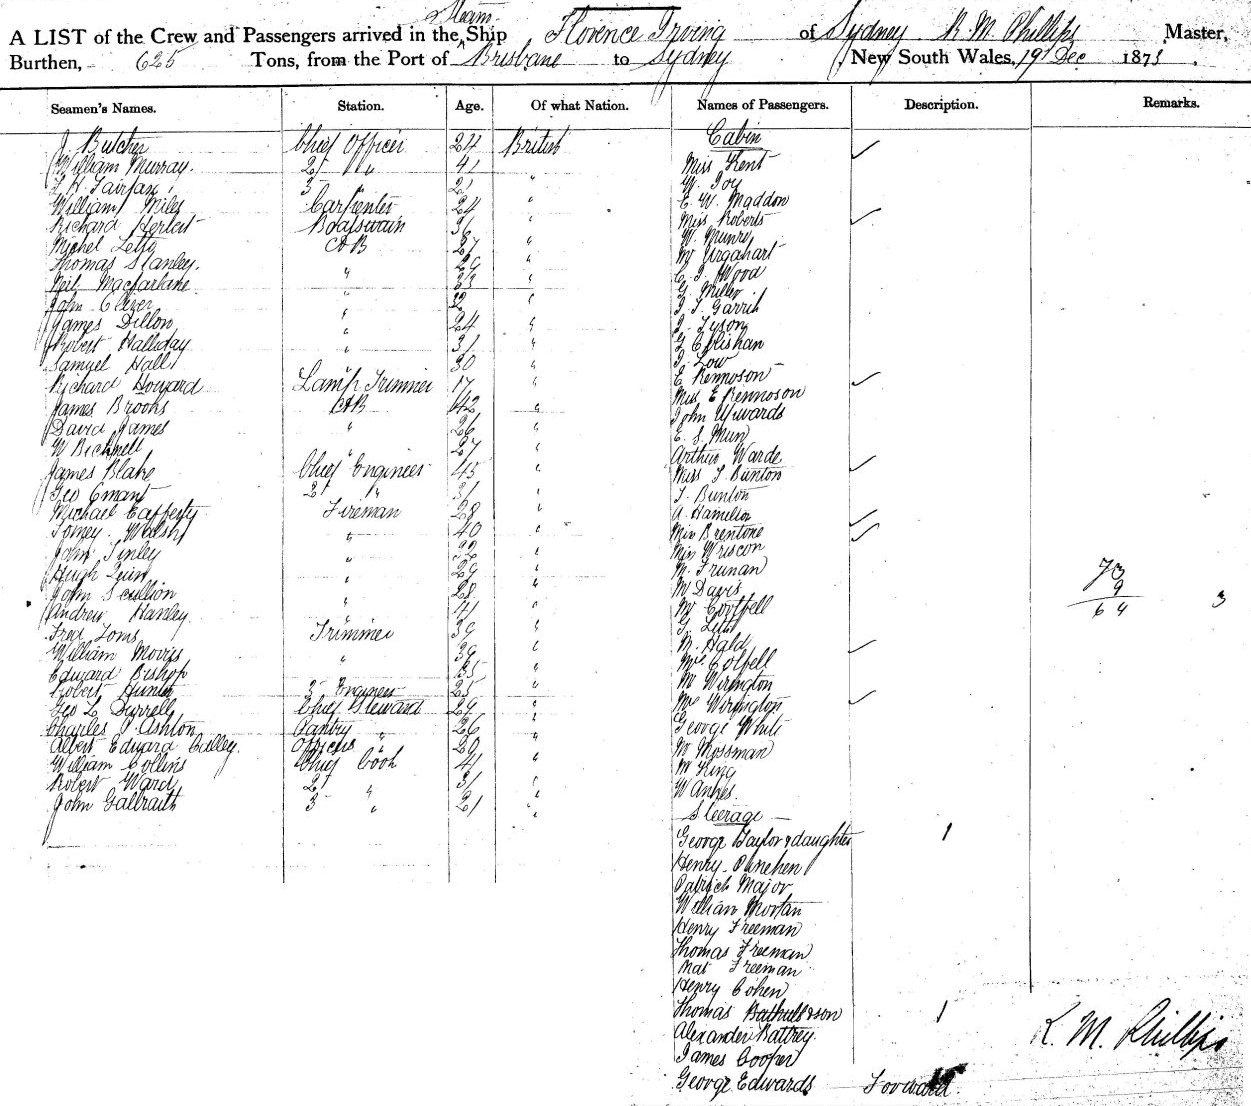 A LIST of the Crew and Passengers arrived in the Steam Ship Florence Irving of Sydney R. M. Phillips Master,
Burthen, 625 Tons, from the Port of Brisbane to Sydney New South Wales, 19th Dec 1873
Seamen's Names. Station. Age. Of what Nation. Names of Passengers. Description. Remarks.
J. Butcher Chief Officer 24 British
William Murray 2d " 41 "
Fairfax 3 " 21 "
William Miles Carpenter 24 "
Richard Herbert Boatswain 36 "
Michel AB 27 "
Thomas Stanley "
Neil Macfarlane " 33 "
John " "
James Dillon " 24 "
Robert Halliday " 31 "
Samuel Hall " 30 "
Richard Howard Lamp Trimmer 17 "
James Brooks AB 42 "
David James " 26 "
W Bicknell " 27 "
James Blake Chief Engineer 45 "
Geo 2d " 31 "
Michael Cafferty Fireman 28 "
Walsh " 40 "
John " 32 "
Hugh Quin " 29 "
John Scullion " 28 "
Andrew Hanley " 41 "
Fred Toms Trimmer 39 "
William Morris " 39 "
Edward Bishop " 35 "
Robert Hunter 3 Engineer 25 "
Geo L Durrell Chief Steward 29 "
Charles P. Ashton Pantry " 26 "
Albert Edward Culley Officers " 20 "
William Collins Chief Cook 41 "
Robert Ward 2d " 31 "
John Galbraith 3 " 21 "
Cabin
Miss Kent
W. Joy
E. W. Maddon
Miss Roberts
W. Munro
Mr Urquhart
C. J. Wood
G. Miller
J. T. Garrick
J. Tyson
G.
J. Low
E Rennoson
Miss E Rennoson
John
E. S.
Arthur Warde
Miss T. Bunton
T. Bunton
A. Hamilton
Miss
Miss
Mr
Mr Davis
Mr
G.
Hald
Mrs
Mr Wirington
Mrs Wirington
George White
Mr Mossman
Mr King
W Annes
Steerage
George Taylor & daughter 1
Henry
Patrick Major
William Mortan
Henry Freeman
Thomas Freeman
Mat Freeman
Henry Cohen
Thomas & son 1
Alexander Battrey
James Cooper
George Edwards Forward
73
9
64 3
R. M. Phillips